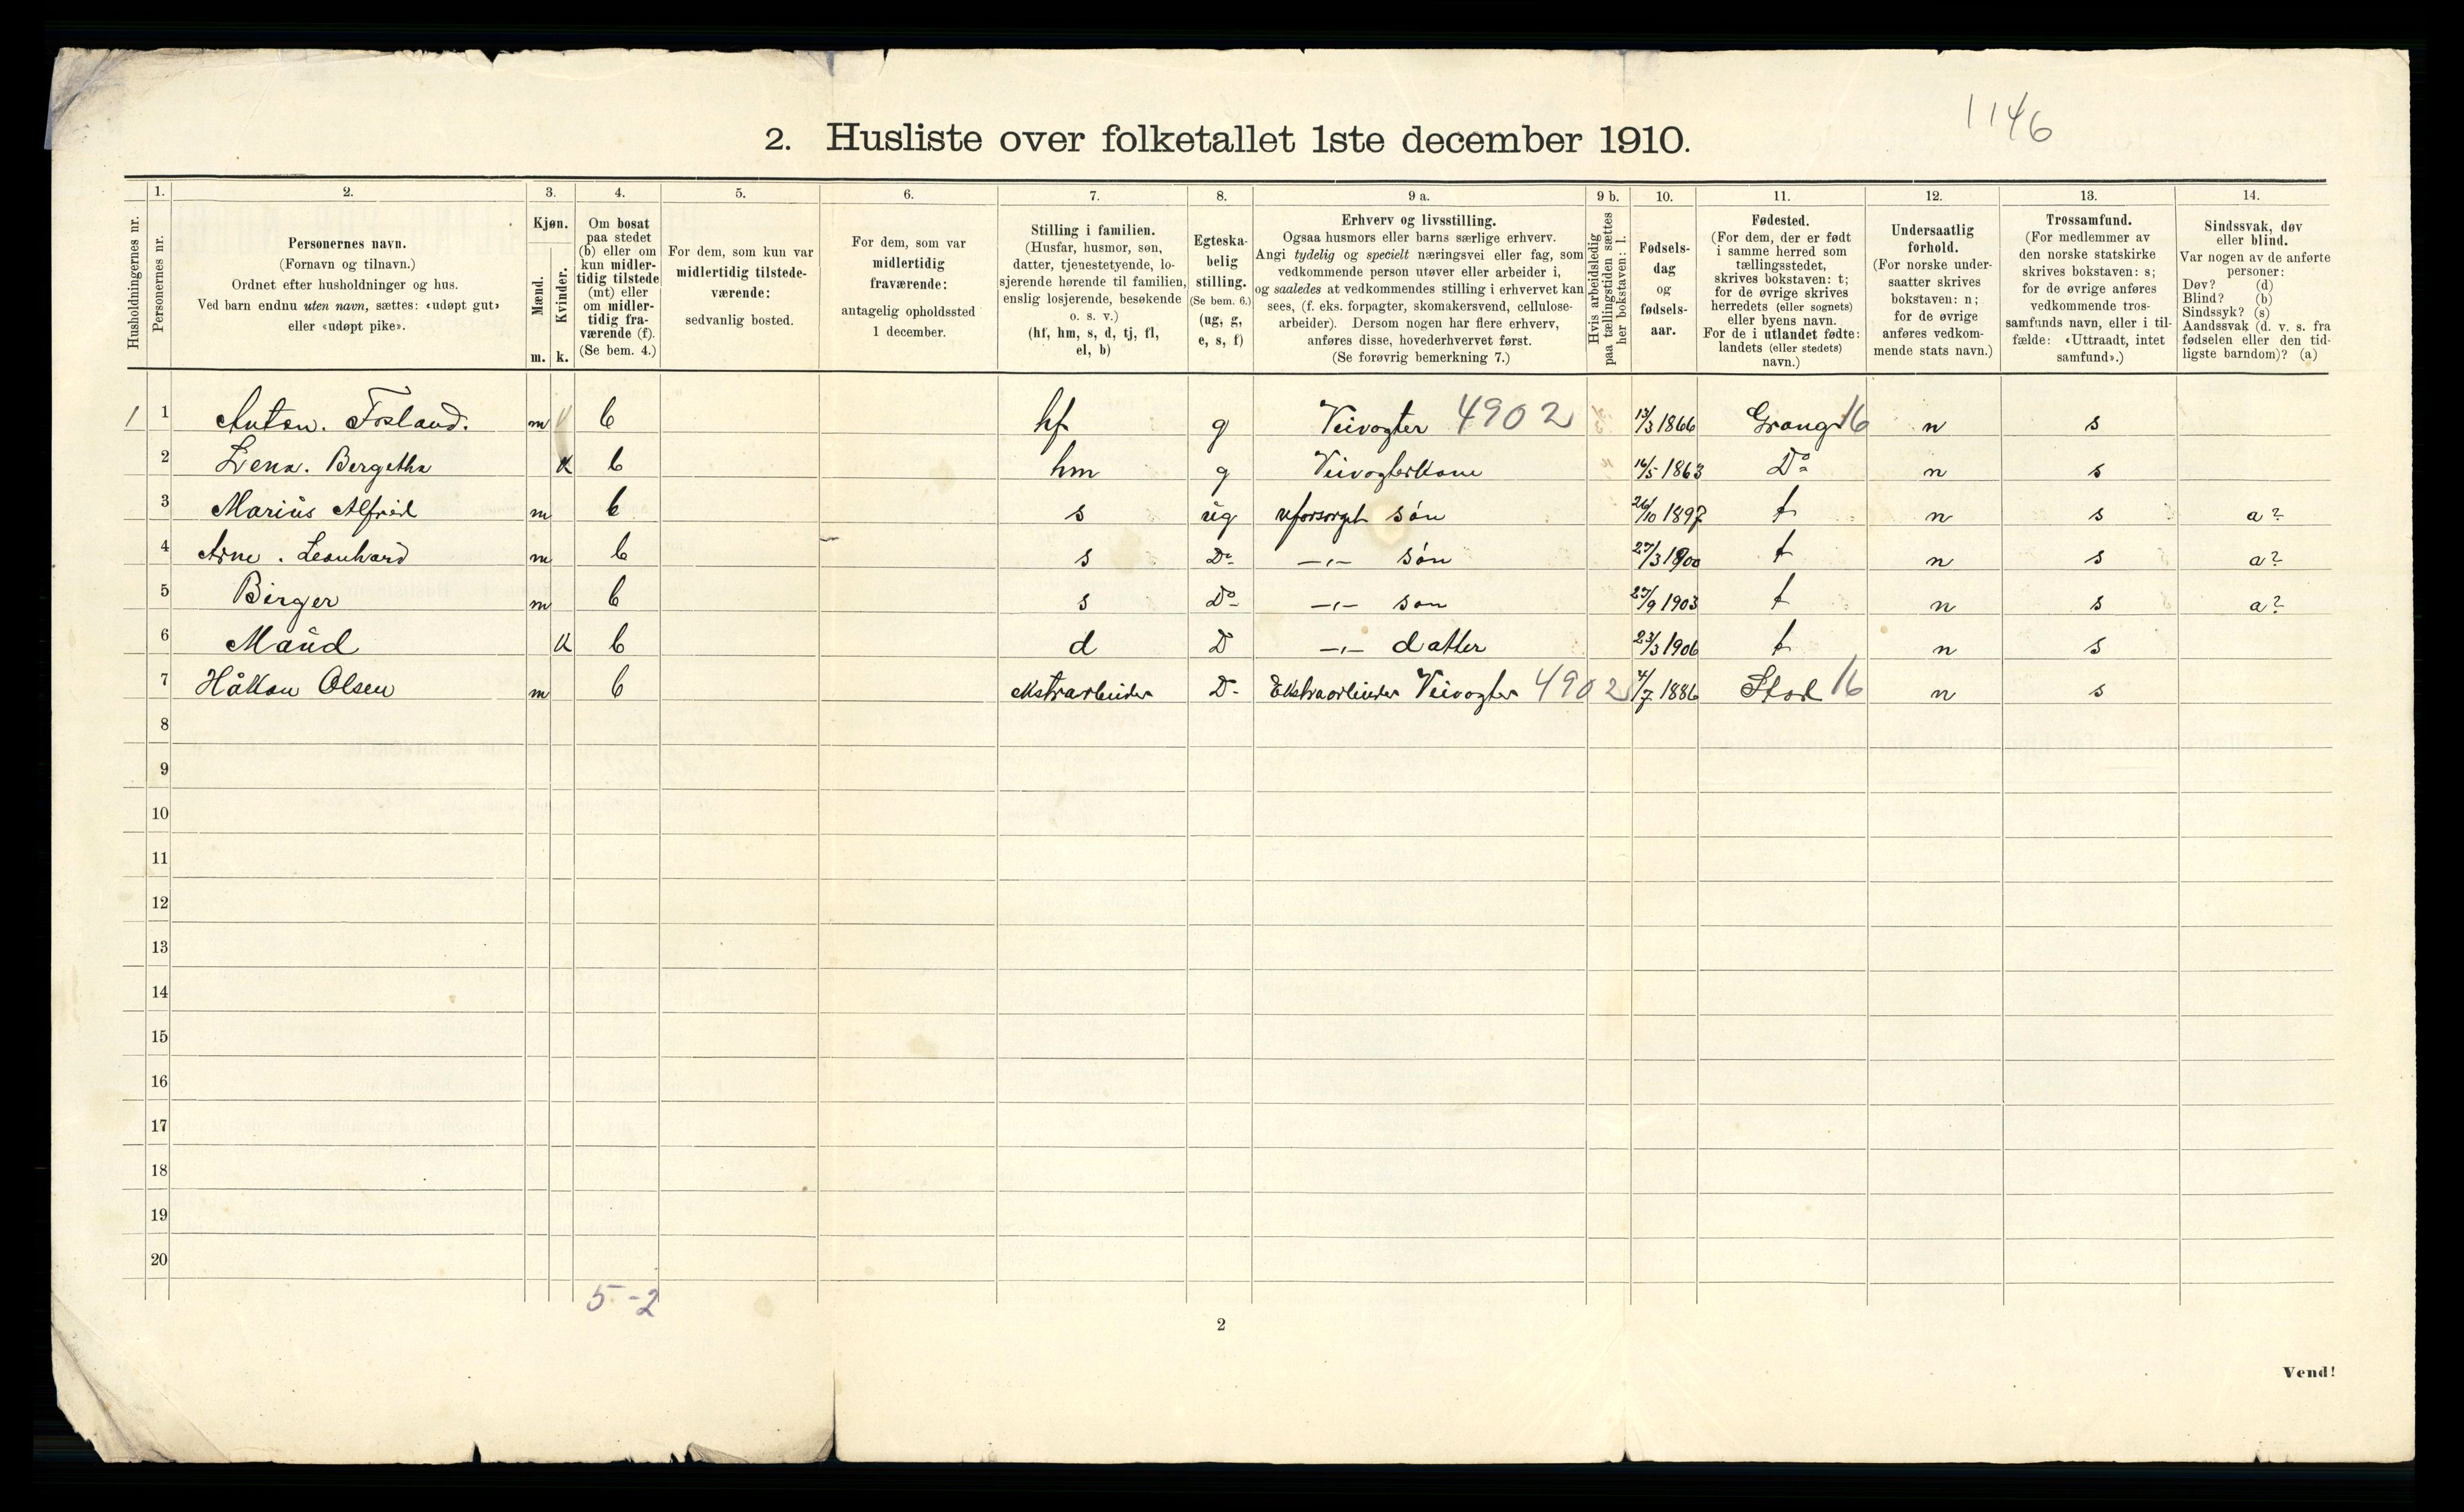 1146
2. Husliste over folketallet 1ste december 1910.
Husholdningernes nr.
1.
Personernes nr.
2.
Personernes navn.
(Fornavn og tilnavn.)
Ordnet efter husholdninger og hus.
Ved barn endnu uten navn, sættes: «udøpt gut»
eller «udøpt pike».
3.
Kjøn.
Mænd.
Kvinder.
m. k.
4.
Om bosat
paa stedet
(b) eller om
kun midler-
tidig tilstede
(mt) eller
om midler-
tidig fra-
værende (f).
(Se bem. 4.)
5.
For dem, som kun var
midlertidig tilstede-
værende:
sedvanlig bosted.
6.
For dem, som var
midlertidig
fraværende:
antagelig opholdssted
1 december.
7.
Stilling i familien.
(Husfar, husmor, søn,
datter, tjenestetyende, lo-
sjerende hørende til familien,
enslig losjerende, besøkende
o. s. v.)
(hf, hm, s, d, tj, fl,
el, b)
8.
Egteska-
belig
stilling.
(Se bem. 6.)
(ug, g,
e, s, f)
9 a.
Erhverv og livsstilling.
Ogsaa husmors eller barns særlige erhverv.
Angi tydelig og specielt næringsvei eller fag, som
vedkommende person utøver eller arbeider i,
og saaledes at vedkommendes stilling i erhvervet kan
sees, (f. eks. forpagter, skomakersvend, cellulose-
arbeider). Dersom nogen har flere erhverv,
anføres disse, hovederhvervet først.
(Se forøvrig bemerkning 7.)
9 b.
Hvis arbeidsledig
paa tællingstiden sættes
her bokstaven: l.
10.
Fødsels-
dag
og
fødsels-
aar.
11.
Fødested.
(For dem, der er født
i samme herred som
tællingsstedet,
skrives bokstaven: t;
for de øvrige skrives
herredets (eller sognets)
eller byens navn.
For de i utlandet fødte:
landets (eller stedets)
navn.)
12.
Undersaatlig
forhold.
(For norske under-
saatter skrives
bokstaven: n;
for de øvrige
anføres vedkom-
mende stats navn.)
13.
Trossamfund.
(For medlemmer av
den norske statskirke
skrives bokstaven: s;
for de øvrige anføres
vedkommende tros-
samfunds navn, eller i til-
fælde: «Uttraadt, intet
samfund».)
14.
Sindssvak, døv
eller blind.
Var nogen av de anførte
personer:
Døv? (d)
Blind? (b)
Sindssyk? (s)
Aandssvak (d. v. s. fra
fødselen eller den tid-
ligste barndom)? (a)
1 1 Anton. Fosland. m b hf g Veivogter 4902 13/3 1866 Grong 16 n s
2 Lena. Bergetha k b hm g Veivogterkone 16/5 1863 Do n s
3 Marius Alfred m b s ug uforsørget søn 26/10 1897 t n s a?
4 Arne. Leonhard m b s Do -"- søn 27/3 1900 t n s a?
5 Birger m b s Do -"- søn 27/9 1903 t n s a?
6 Maud k b d D -"- datter 23/3 1906 t n s
7 Håkon Olsen m b ekstraarbeider D- Ekstraarbeider Veivogter 4902 4/7 1886 Stod 16 n s
8
9
10
11
12
13
14
15
16
17
18
19
20
5-2
2
Vend!